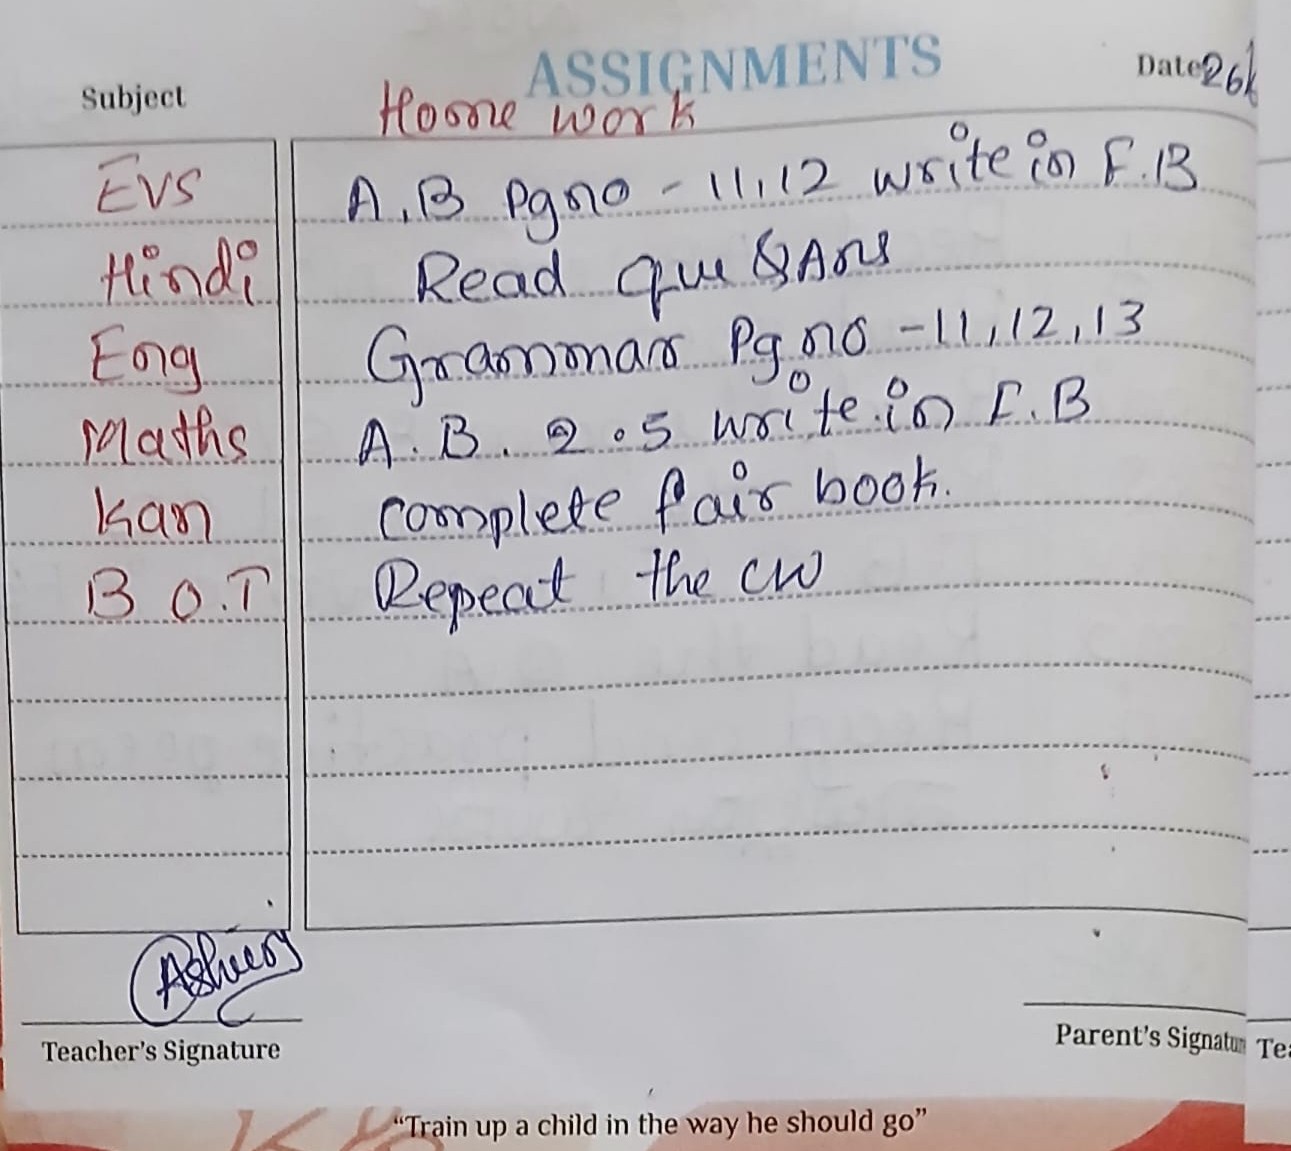 ASSIGNMENTS
Subject
Date 26/
Home work
Evs A.B Pg no - 11,12 write in F.B
Hindi Read que & Ans
Eng Grammar Pg no - 11,12,13
Maths A.B. 2.5 write in F.B
Kan complete fair book.
B O.T Repeat the CW
Teacher's Signature
Parent's Signatur
Tea
“Train up a child in the way he should go”